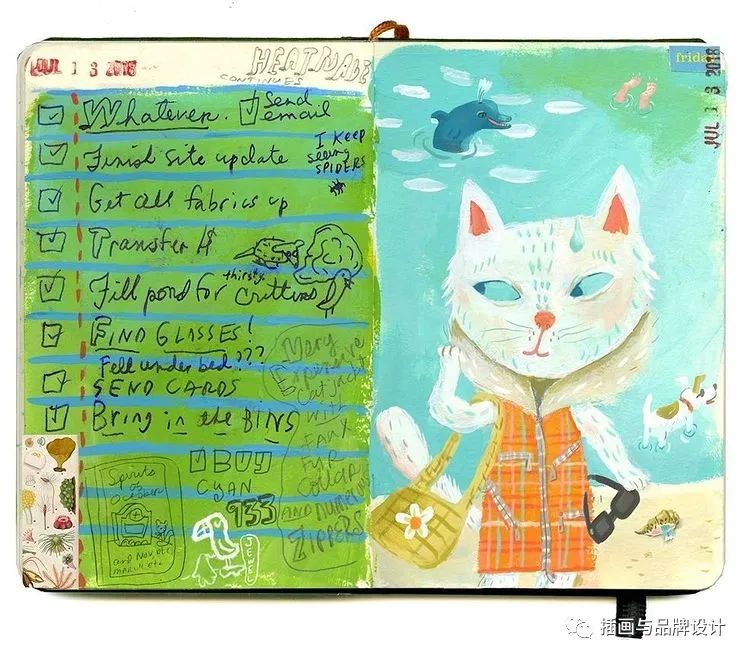 JUL 1 3 2018
HEATWAVE
CONTINUES
Whatever. Send
email
Finish site update
I keep
seeing
SPIDERS
Get all fabrics up
Transfer $
Fill pond for thirsty critters
FIND GLASSES!
Fell under bed???
SEND CARDS
Bring in the BINS
BUY
CYAN
933
Spirits
of
October
and Nov, etc
March etc
Very
Expensive
Cat Jacket
with
FAUX
Fur
Collar
AND numerous
ZIPPERS
friday
JUL 1 3 2018
插画与品牌设计